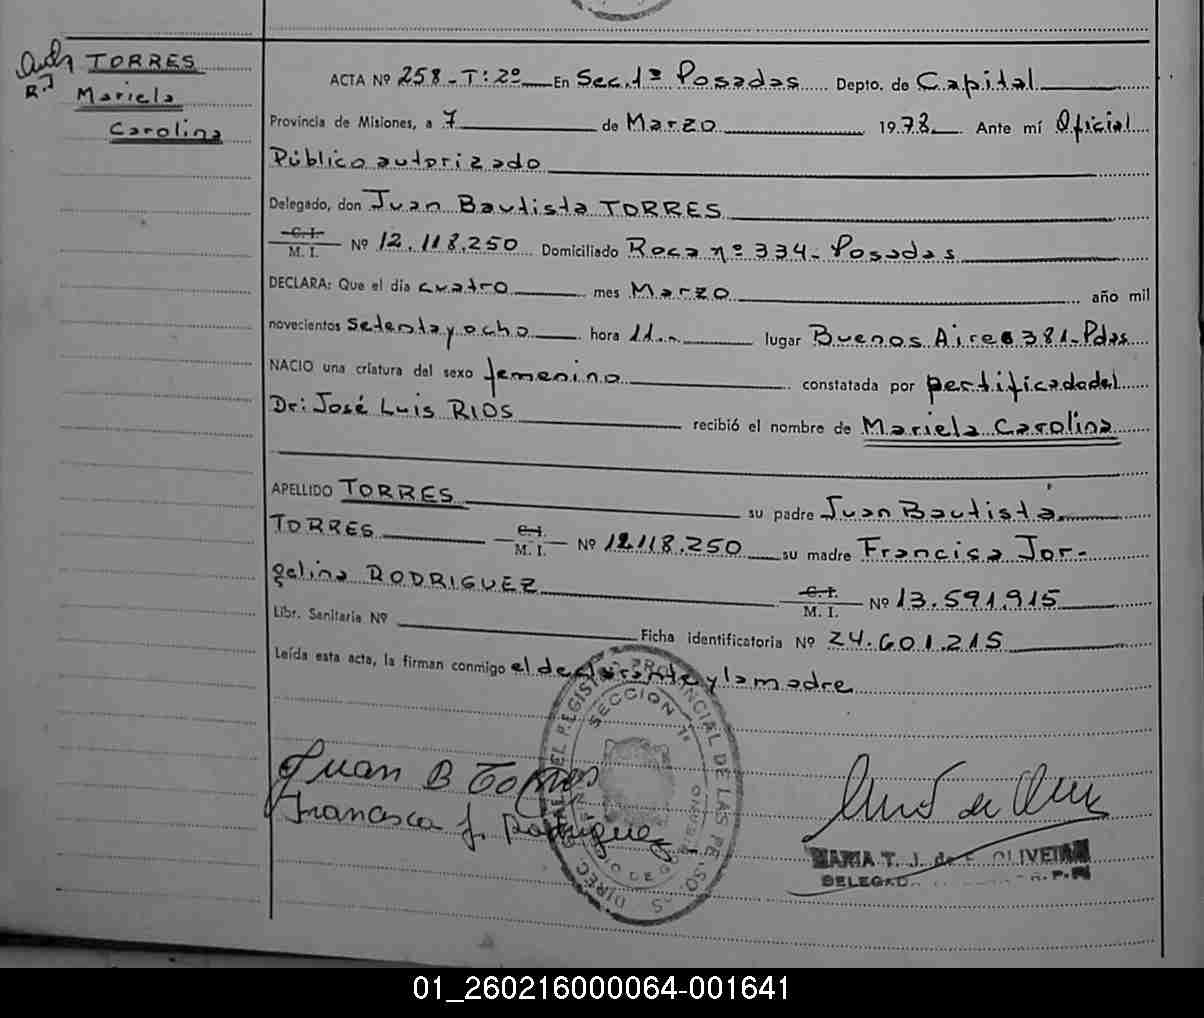 TORRES
Mariela
Carolina
ACTA Nº 258-T:2º En Sec.1ª Posadas Depto. de Capital
Provincia de Misiones, a 7 de Marzo 1978 Ante mí Oficial
Público autorizado
Delegado, don Juan Bautista TORRES
C.I.
M. I. Nº 12.118.250 Domiciliado Roca nº 334- Posadas
DECLARA: Que el día cuatro mes Marzo año mil
novecientos setenta y ocho hora 11.. lugar Buenos Aires 381-Pdas
NACIO una criatura del sexo femenino constatada por certificado del
Dr: José Luis RIOS recibió el nombre de Mariela Carolina
APELLIDO TORRES su padre Juan Bautista
TORRES C.I. M. I. Nº 12118.250 su madre Francisa Jor-
gelina RODRIGUEZ C.I. M. I. Nº 13.591.915
Libr. Sanitaria Nº Ficha identificatoria Nº 24.601.215
Leída esta acta, la firman conmigo el declarante y la madre
DIREC. DEL REGISTRO PROVINCIAL DE LAS PERSONAS
SECCION 1ª
Juan B Torres
Francisca J. Rodriguez
MARIA T. J. de F. OLIVEIRA
DELEGAD
01_260216000064-001641